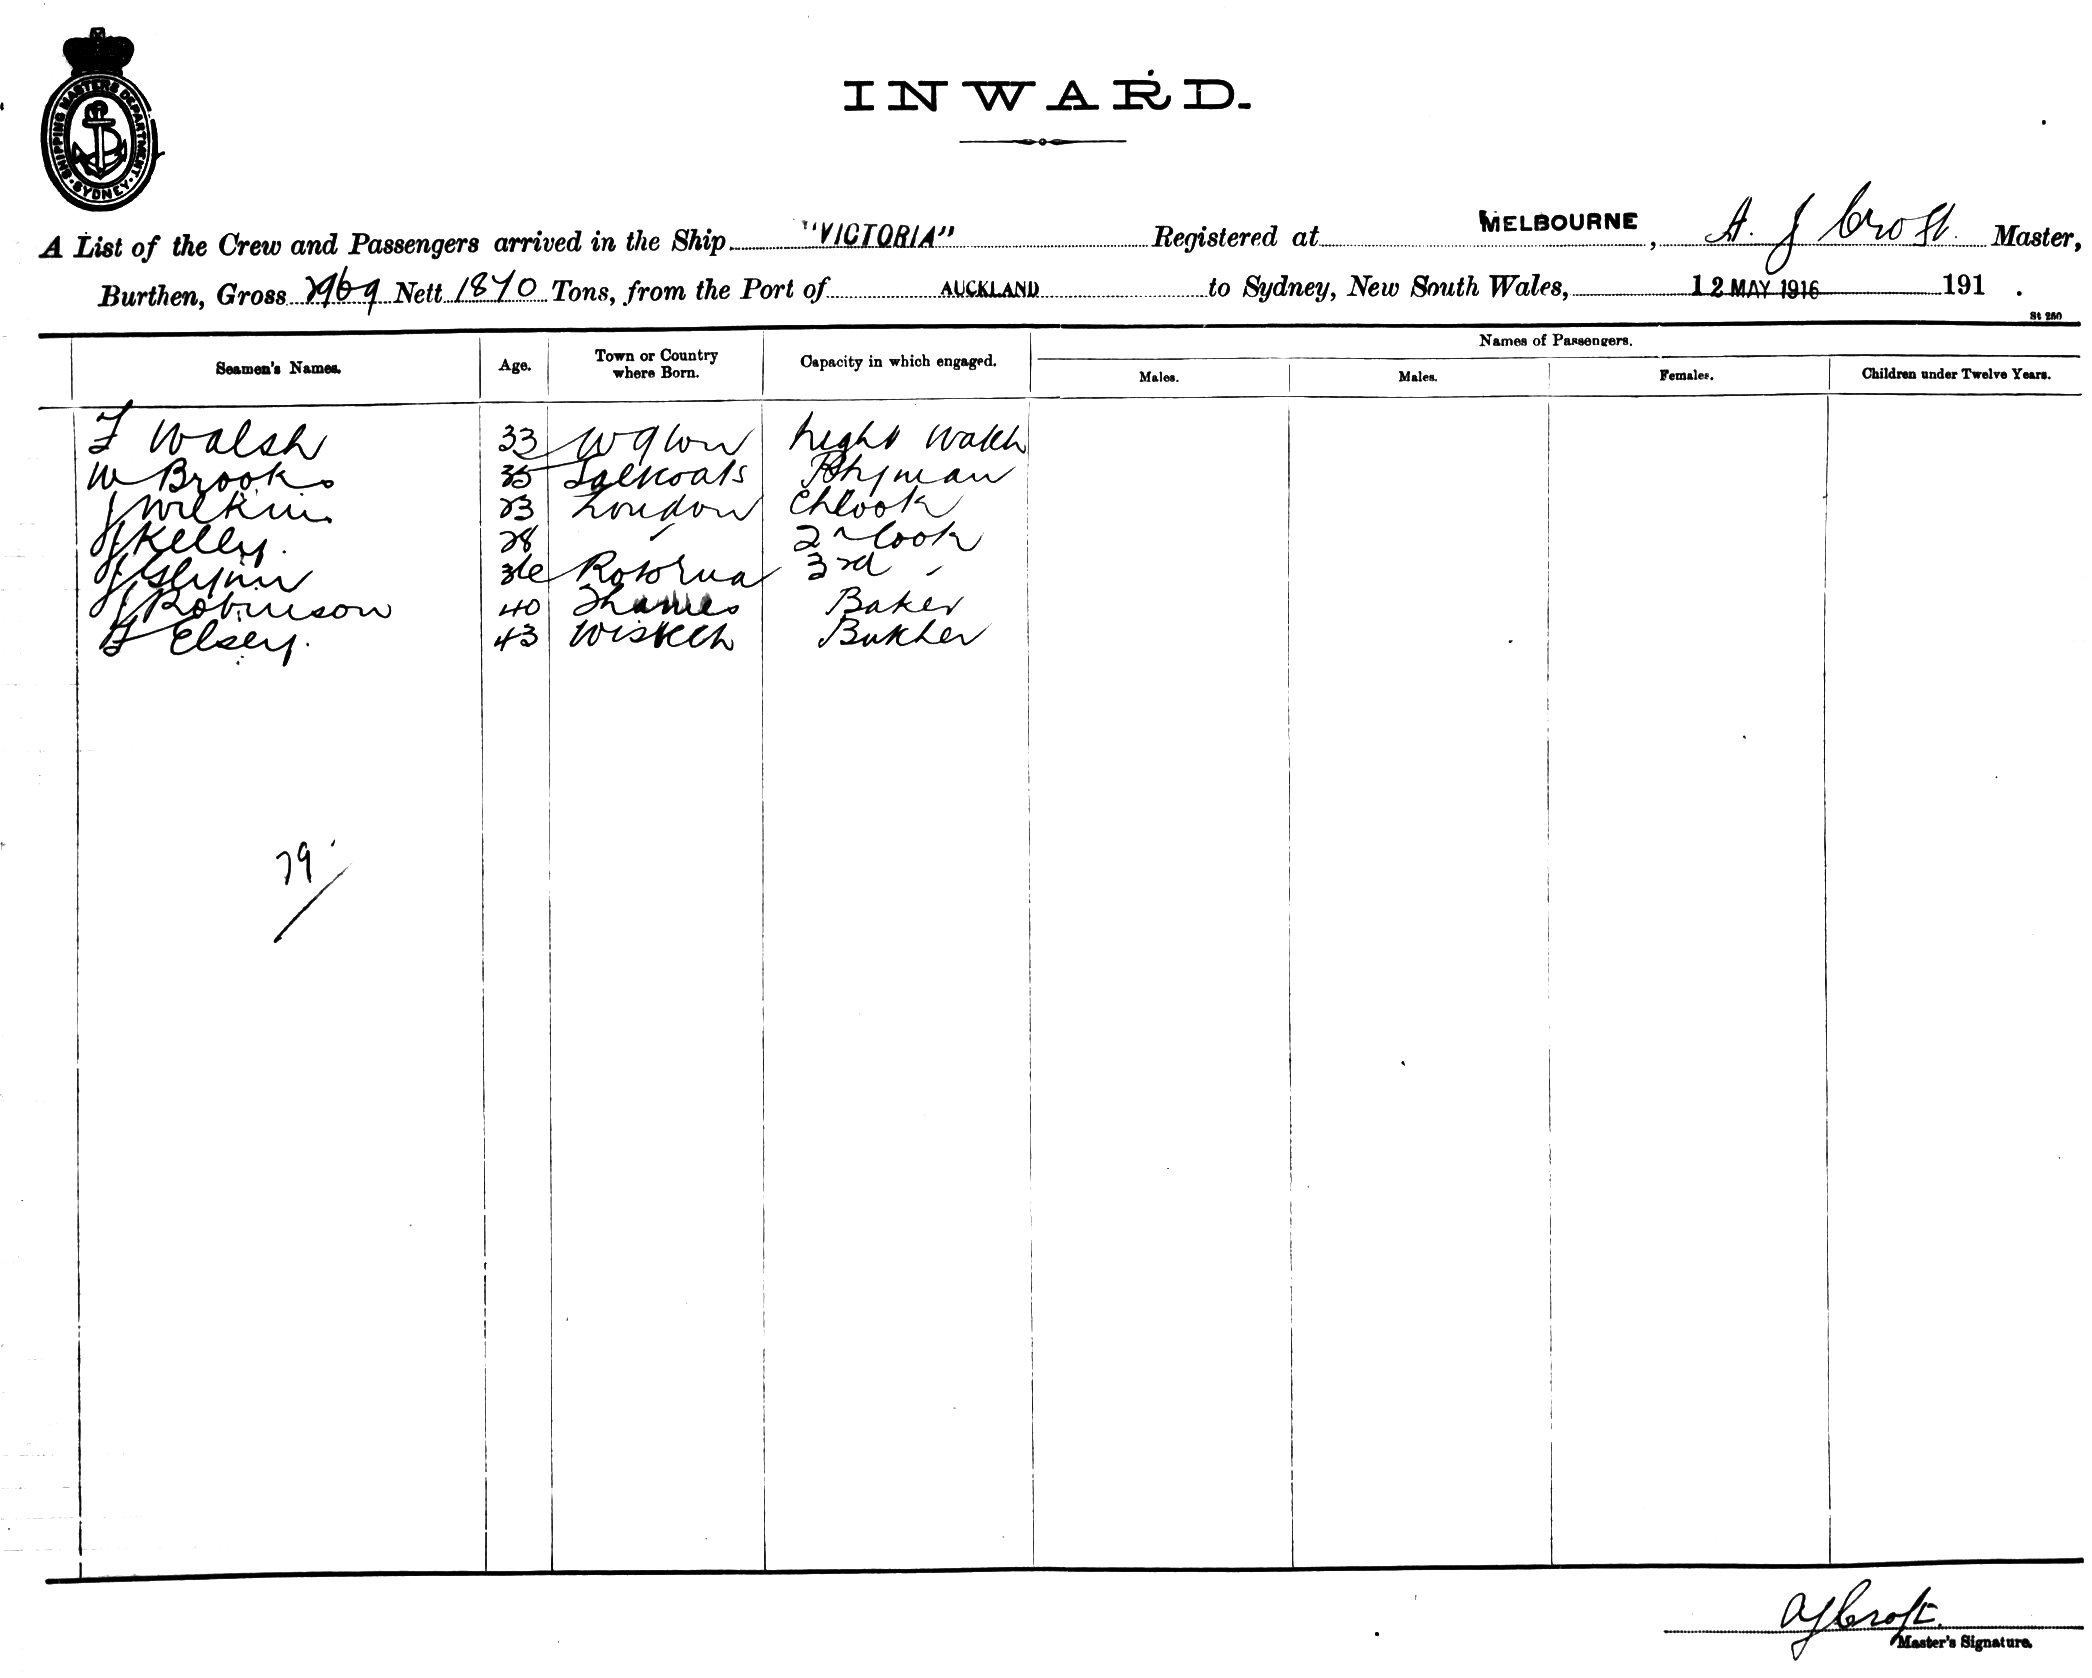 SHIPPING MASTERS DEPARTMENT
SYDNEY
INWARD.
A List of the Crew and Passengers arrived in the Ship "VICTORIA" Registered at MELBOURNE, A. J Croft. Master,
Burthen, Gross 2969 Nett 1870 Tons, from the Port of AUCKLAND to Sydney, New South Wales, 12 MAY 1916 191 .
St 280
Names of Passengers.
Seamen's Names. Age. Town or Country where Born. Capacity in which engaged. Males. Males. Females. Children under Twelve Years.
F Walsh 33 Wgton Night Watch
W Brooks 35 Salkoats
J Wilkins 23 London Ch Cook
J Kelly. 28 " 2nd Cook
J Glynn 36 Rotorua 3rd "
J Robinson 40 Thames Baker
F Elsey. 43 Wisbech Butcher
79
A J Croft.
Master's Signature.